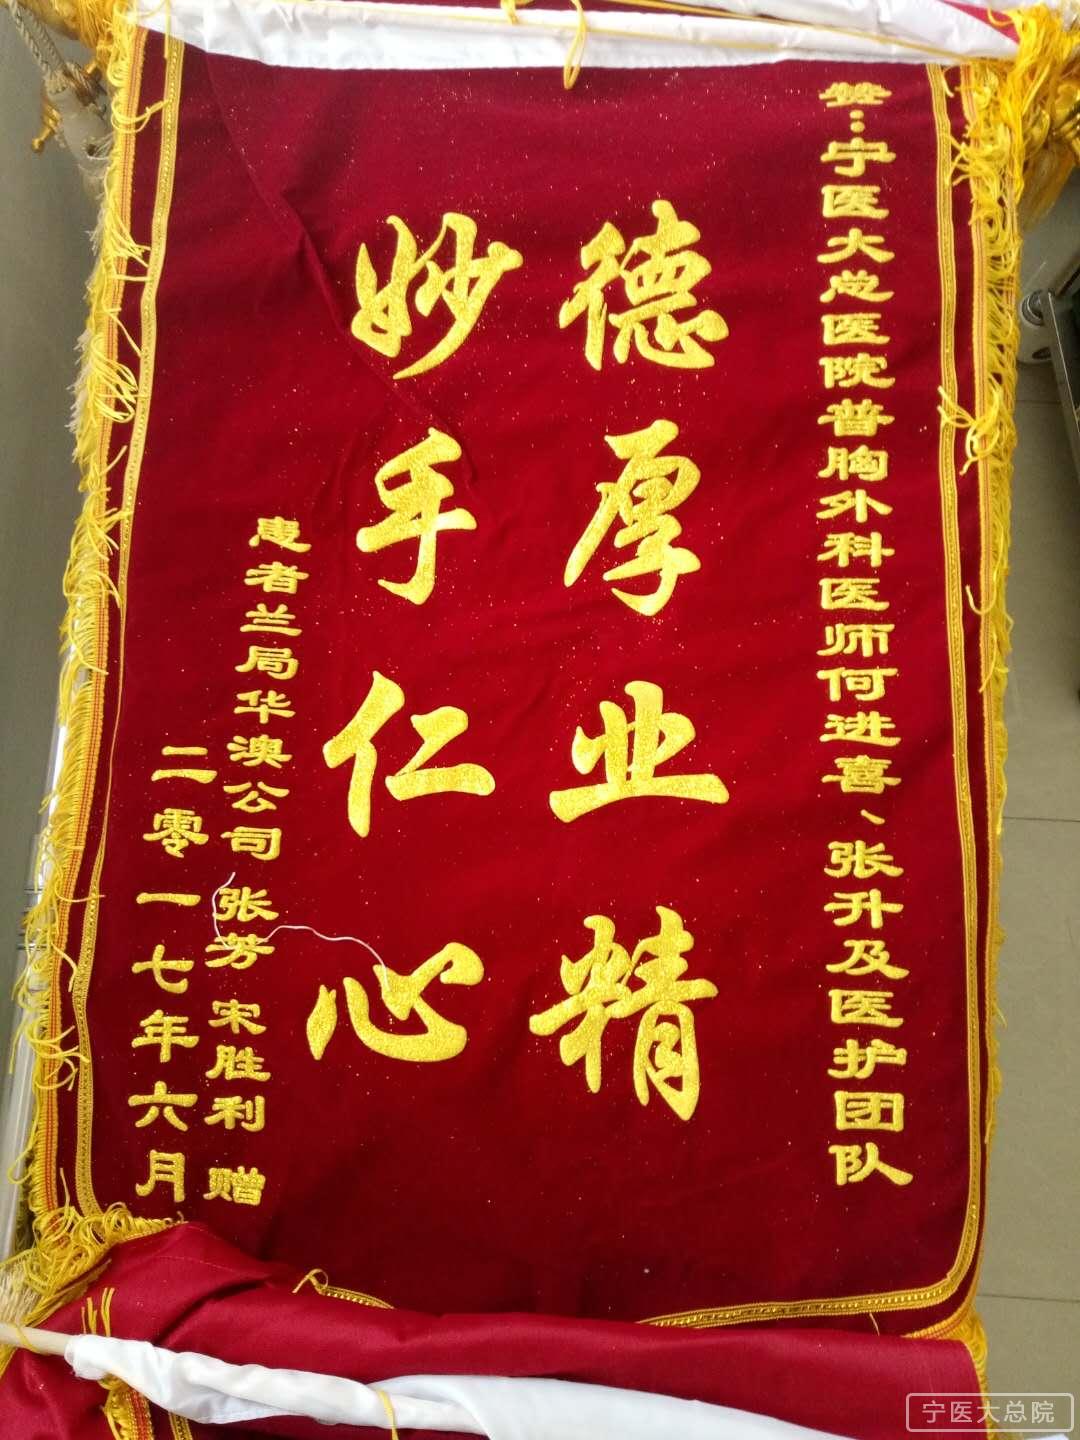 赞：宁医大总医院普胸外科医师何进喜、张升及医护团队
德厚业精
妙手仁心
患者兰局华澳公司 张芳 宋胜利 赠
二零一七年六月
宁医大总院